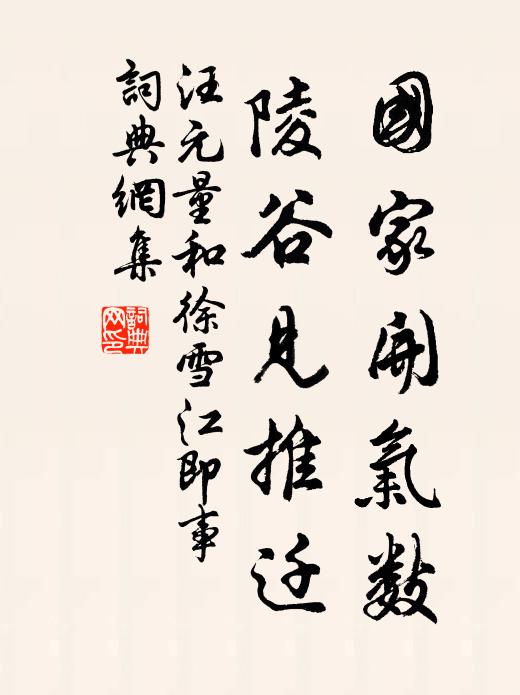 國家開氣數
陵谷見推迁
汪元量和徐雪江即事
詞典網集
詞典网印